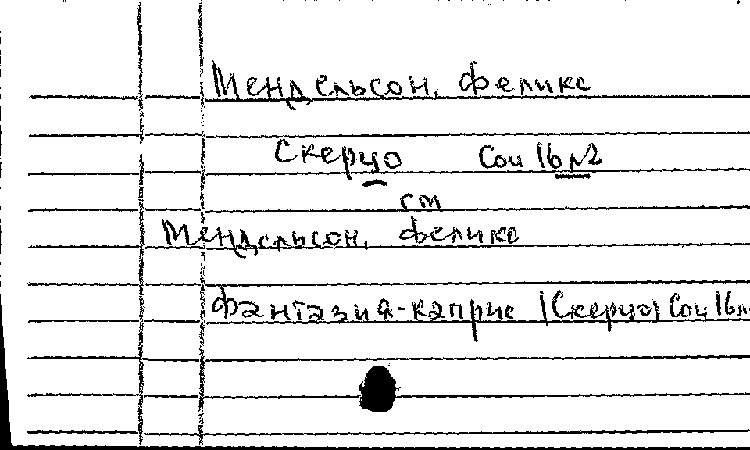 Мендельсон, Феликс
Скерцо Соч 16 №2
см
Мендельсон, Феликс
Фантазия-каприс (Скерцо) Соч 16